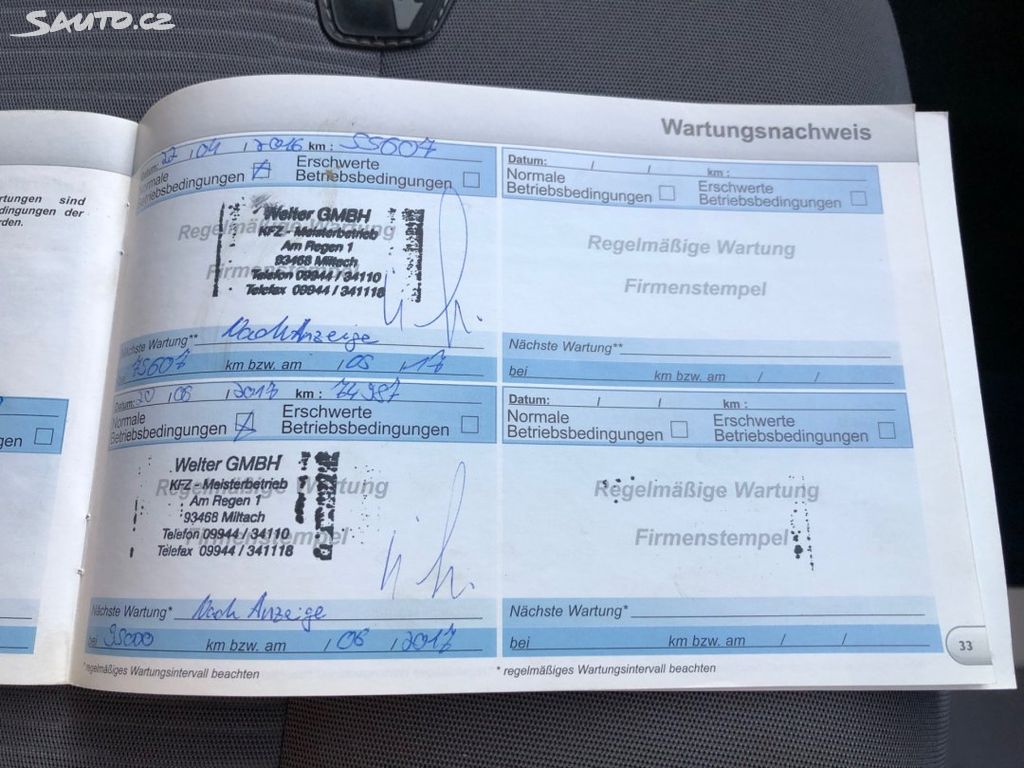 SAUTO.CZ
rtungen sind
dingungen der
rden.
gen
Wartungsnachweis
Datum: 22 / 04 / 2016 km : 55607
Normale Betriebsbedingungen Erschwerte Betriebsbedingungen
Regelmäßige Wartung
Firmenstempel
Welter GMBH
KFZ - Meisterbetrieb
Am Regen 1
93468 Miltach
Telefon 09944 / 34110
Telefax 09944 / 341118
Nächste Wartung** Nach Anzeige
bei 75607 km bzw. am / 05 / 17
Datum: 20 / 06 / 2017 km : 74987
Normale Betriebsbedingungen Erschwerte Betriebsbedingungen
Regelmäßige Wartung
Firmenstempel
Welter GMBH
KFZ - Meisterbetrieb
Am Regen 1
93468 Miltach
Telefon 09944 / 34110
Telefax 09944 / 341118
Nächste Wartung* Nach Anzeige
bei 95000 km bzw. am / 06 / 2017
* regelmäßiges Wartungsintervall beachten
Datum: / / km :
Normale Betriebsbedingungen Erschwerte Betriebsbedingungen
Regelmäßige Wartung
Firmenstempel
Nächste Wartung**
bei km bzw. am / /
Datum: / / km :
Normale Betriebsbedingungen Erschwerte Betriebsbedingungen
Regelmäßige Wartung
Firmenstempel
Nächste Wartung*
bei km bzw. am / /
* regelmäßiges Wartungsintervall beachten
33